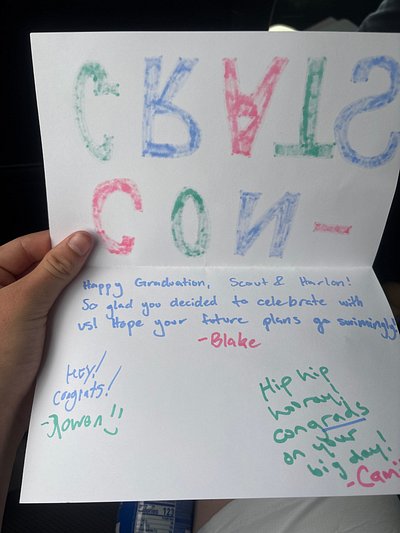 CON-
GRATS
Happy Graduation, Scout & Harlon!
So glad you decided to celebrate with
us! Hope your future plans go swimmingly
-Blake
HEY!
Congrats!
-Rowan
Hip hip
hooray!
congrads
on your
big day!
123